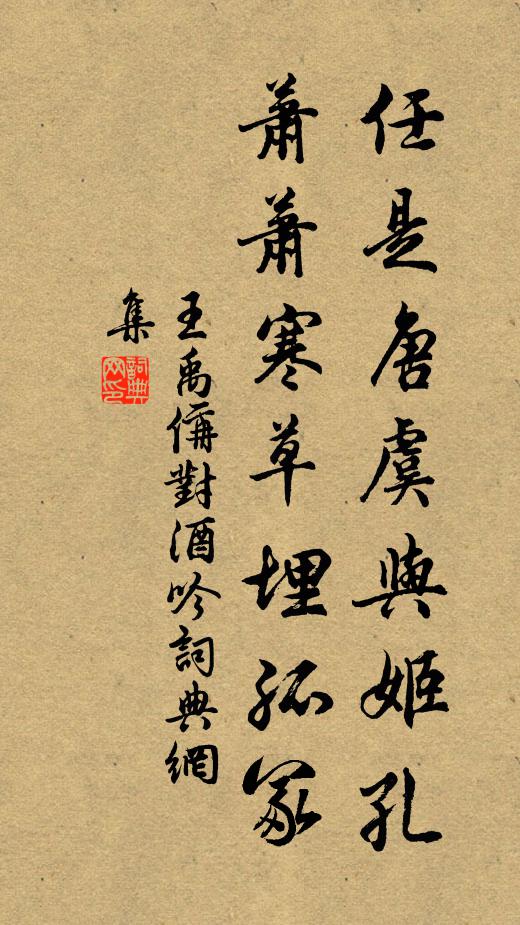 任是唐虞與姬孔
蕭蕭寒草埋孤冢
王禹偁對酒吟詞典網
集
詞典
网印